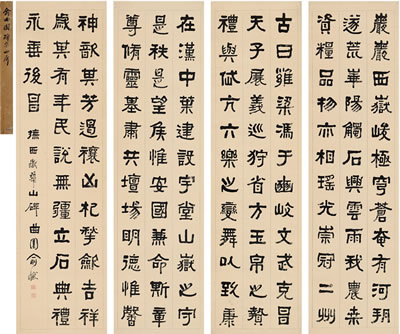 巖巖西嶽峻極穹蒼奄有河朔
遂荒華陽觸石興雲雨我農桑
資糧品物亦相瑤光崇冠二州
古曰雍梁馮于豳岐文武克昌
天子展義巡狩省方玉帛之贄
禮與岱亢六樂之變舞以致康
在漢中葉建設宇堂山嶽之守
是秩是望侯惟安國兼命斯章
尊脩靈基肅共壇場明德惟馨
神歆其芳遏禳凶札揫斂吉祥
歲其有年民說無疆立石典禮
永垂後昌
撫西嶽華山碑 曲園俞樾